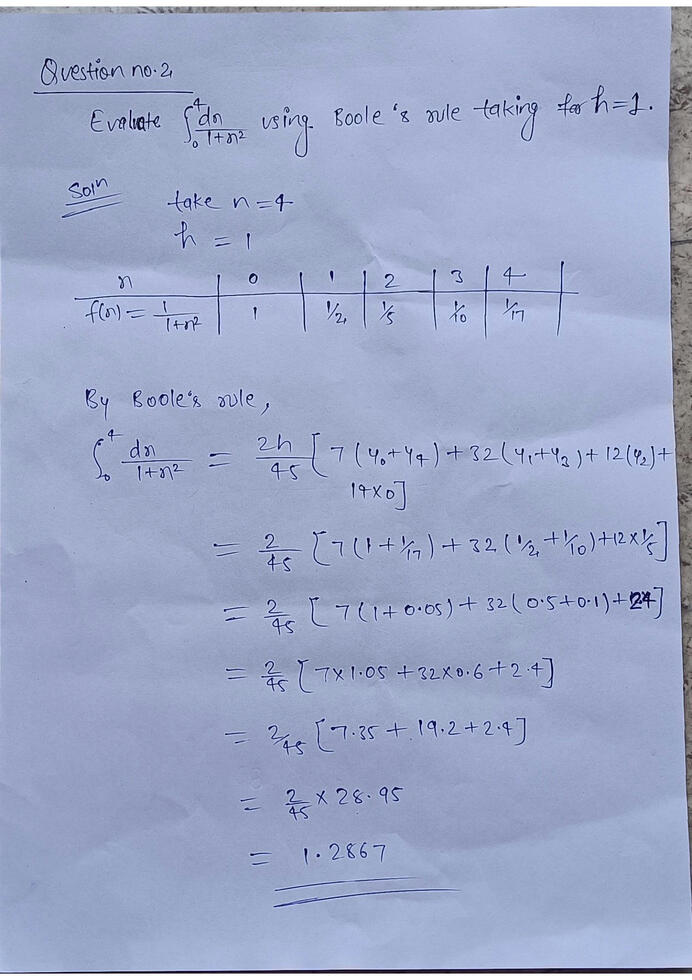 Question no.2
Evaluate ∫₀⁴ dx/1+x² using Boole's rule taking for h=1.
Solⁿ take n=4
h = 1
x | 0 | 1 | 2 | 3 | 4 |
f(x) = 1/1+x² | 1 | 1/2 | 1/5 | 1/10 | 1/17 |
By Boole's rule,
∫₀⁴ dx/1+x² = 2h/45 [7(y₀+y₄)+32(y₁+y₃)+12(y₂)+
14×0]
= 2/45 [7(1+1/17)+32(1/2+1/10)+12×1/5]
= 2/45 [7(1+0.05)+32(0.5+0.1)+24]
= 2/45 [7×1.05+32×0.6+2.4]
= 2/45 [7.35+19.2+2.4]
= 2/45 × 28.95
= 1.2867